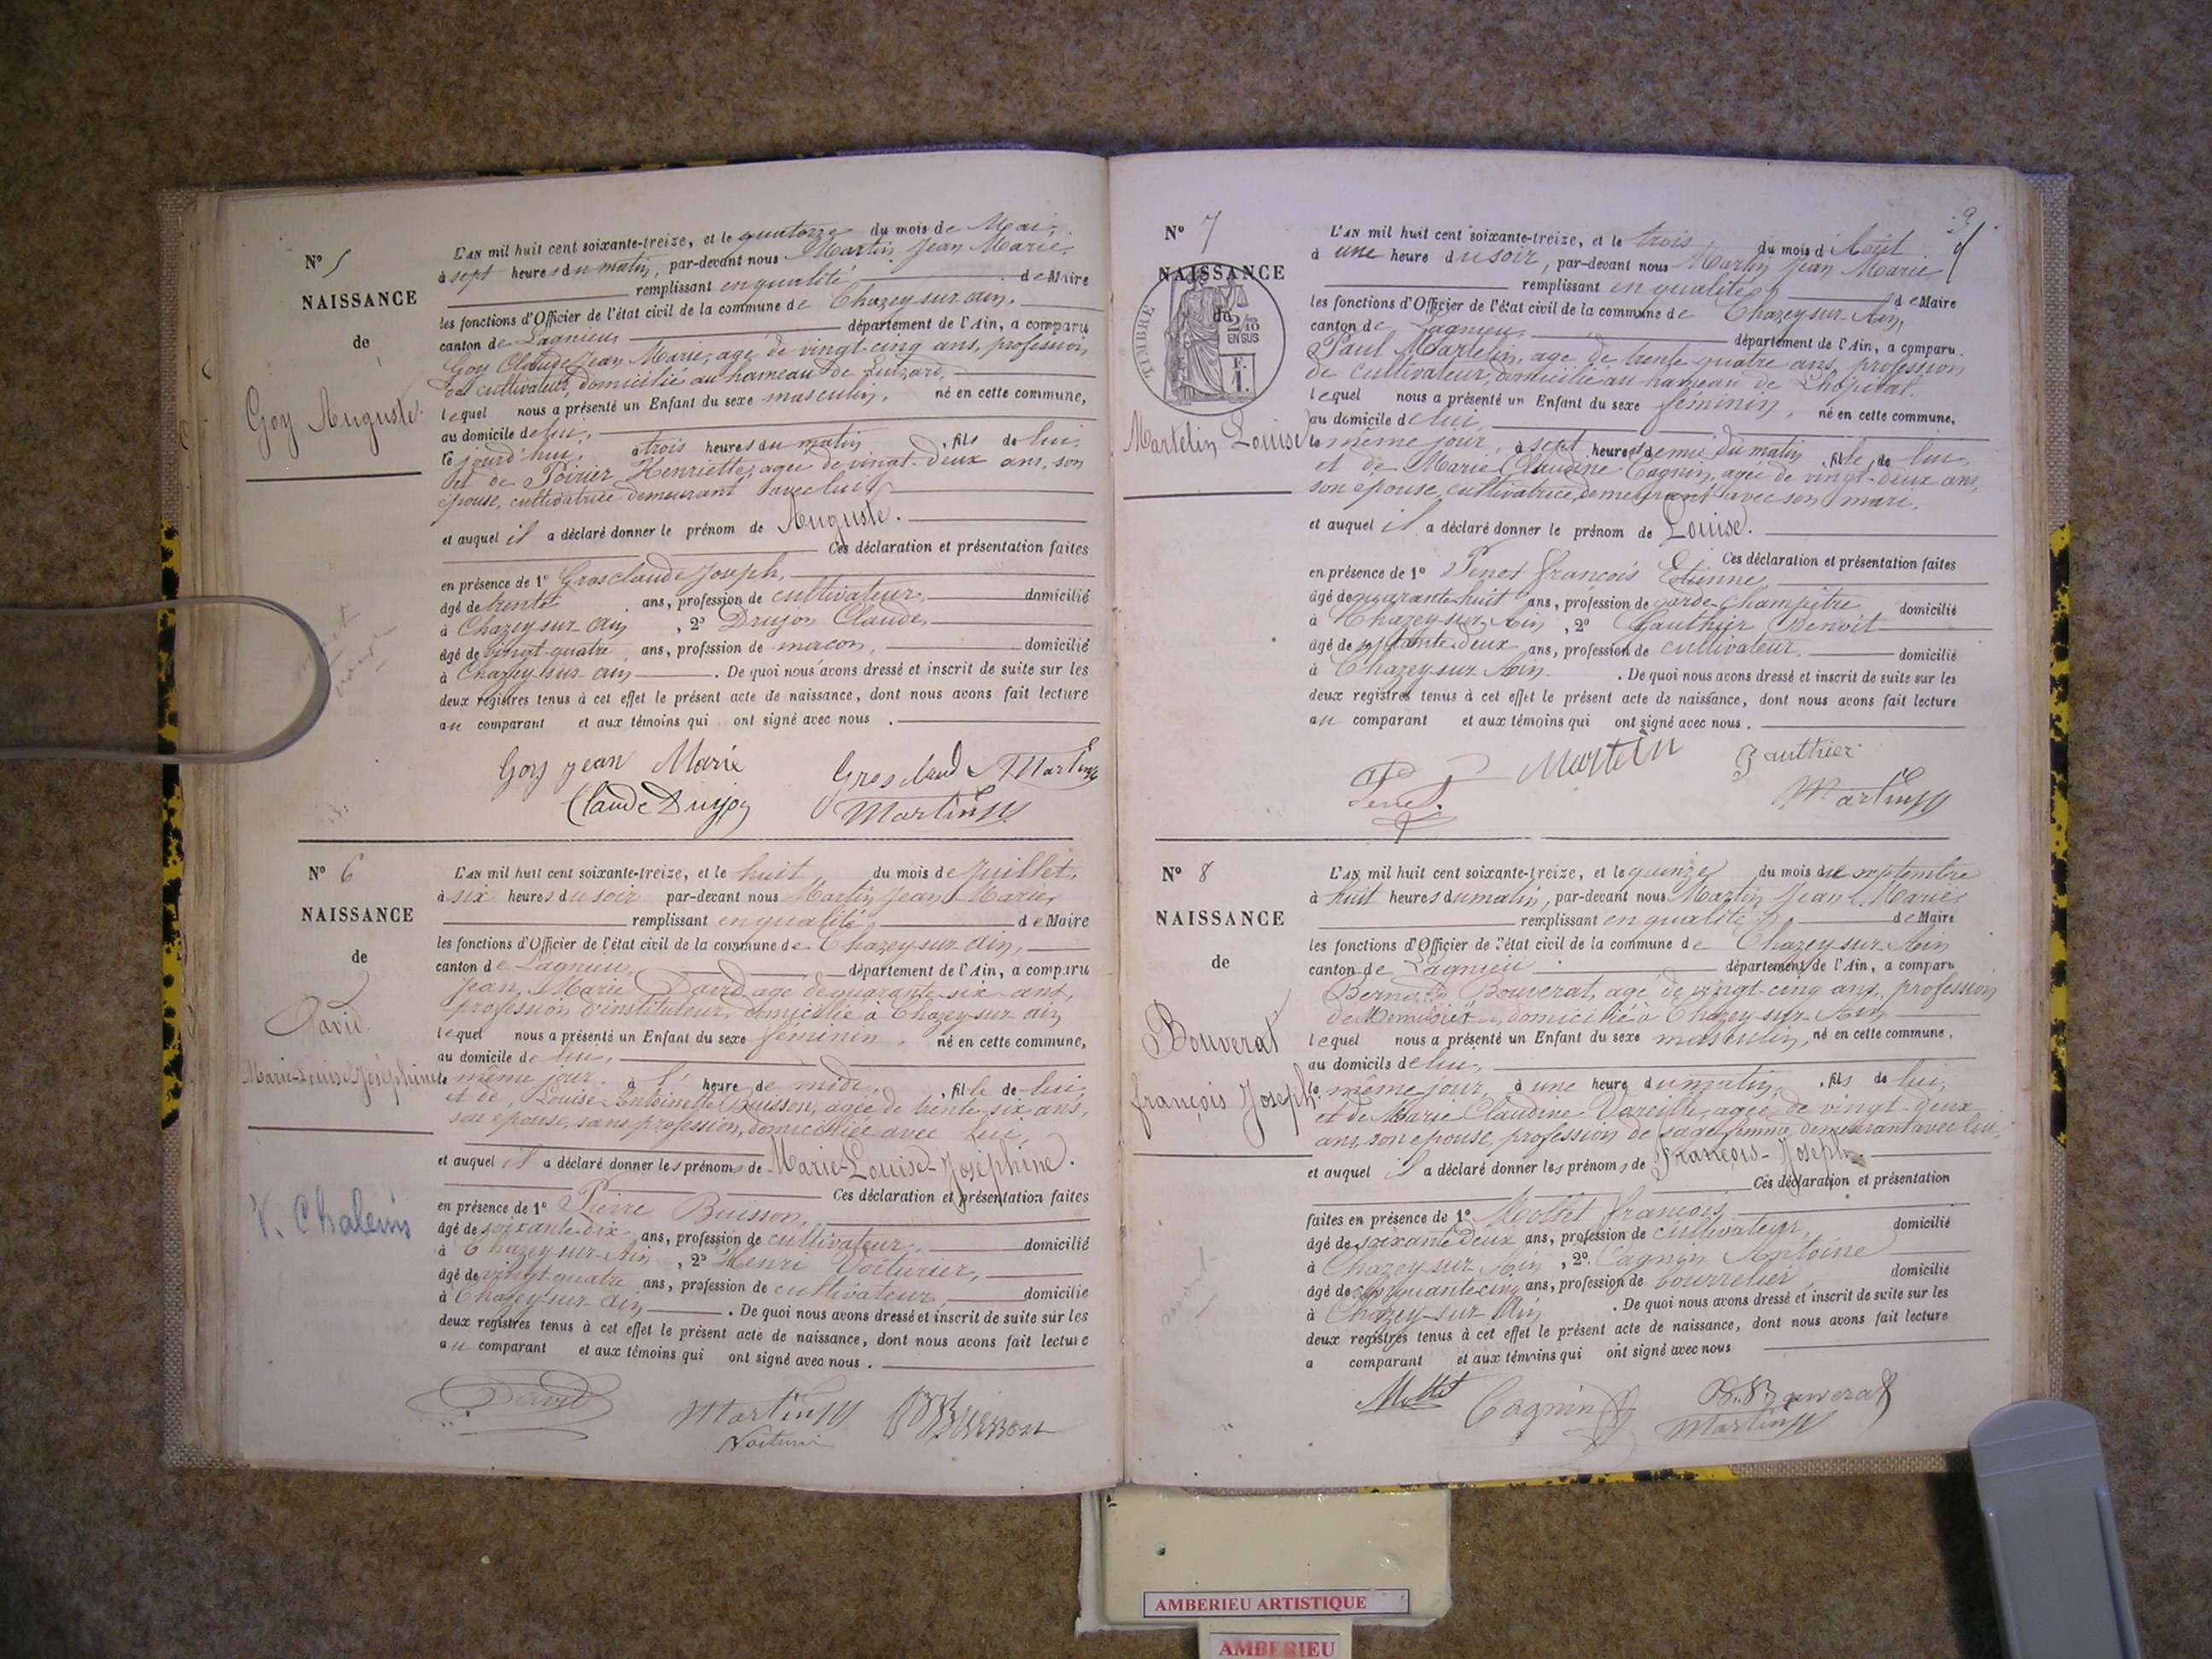 N° 5
NAISSANCE
de
Goy Auguste.
L'AN mil huit cent soixante-treize, et le quatorze du mois de Mai,
à sept heures du matin, par-devant nous Martin Jean Marie
remplissant en qualité de Maire
les fonctions d'Officier de l'état civil de la commune de Chazey sur ain,
canton de Lagnieu département de l'Ain, a comparu
Goy Claude Jean Marie, agé de vingt-cinq ans, profession
de cultivateur, domicilié au hameau de Luizard,
lequel nous a présenté un Enfant du sexe masculin, né en cette commune,
au domicile de lui,
le jourd'hui, à trois heures du matin, fils de lui,
et de Poirier Henriette, agée de vingt-deux ans, son
épouse, cultivatrice demeurant avec lui
et auquel il a déclaré donner le prénom de Auguste.
Ces déclaration et présentation faites
en présence de 1° Grosclaude Joseph,
âgé de trente ans, profession de cultivateur, domicilié
à Chazey-sur-ain, 2° Drujon Claude,
âgé de vingt-quatre ans, profession de macon, domicilié
à Chazey-sur-ain. De quoi nous avons dressé et inscrit de suite sur les
deux registres tenus à cet effet le présent acte de naissance, dont nous avons fait lecture
au comparant et aux témoins qui ont signé avec nous.
Goy jean Marie
Claude Drujon Martin
N° 6
NAISSANCE
de
David
Marie-Louise-Joséphine
V. Chaleins
L'AN mil huit cent soixante-treize, et le huit du mois de Juillet,
à six heures du soir par-devant nous Martin Jean Marie,
remplissant en qualité de Maire
les fonctions d'Officier de l'état civil de la commune de Chazey-sur-ain,
canton de Lagnieu, département de l'Ain, a comparu
Jean Marie David, agé de quarante-six ans,
profession d'instituteur, domicilié à Chazey-sur-ain
lequel nous a présenté un Enfant du sexe féminin, né en cette commune,
au domicile de lui,
le même jour à l' heure de midi, fille de lui,
et de Louise-Antoinette Buisson, agée de trente-six ans,
son epouse, sans profession, domiciliée avec lui,
et auquel il a déclaré donner les prénoms de Marie-Louise-Joséphine.
Ces déclaration et présentation faites
en présence de 1° Pierre Buisson,
âgé de soixante-dix ans, profession de cultivateur, domicilié
à Chazey-sur-Ain, 2° Henri Voiturier,
âgé de vingt-quatre ans, profession de cultivateur, domicilié
à Chazey-sur-ain. De quoi nous avons dressé et inscrit de suite sur les
deux registres tenus à cet effet le présent acte de naissance, dont nous avons fait lecture
au comparant et aux témoins qui ont signé avec nous.
David Martin Buisson
3
N° 7
NAISSANCE
de
TIMBRE
2/10
EN SUS
F.
1.
Martelin Louise
L'AN mil huit cent soixante-treize, et le trois du mois d'Août
à une heure du soir, par-devant nous Martin Jean Marie
remplissant en qualité de Maire
les fonctions d'Officier de l'état civil de la commune de Chazey sur Ain,
canton de Lagnieu département de l'Ain, a comparu.
Paul Martelin, age de trente quatre ans, profession
de cultivateur, domicilié au hameau de Lhopital.
lequel nous a présenté un Enfant du sexe féminin, né en cette commune,
au domicile de lui,
le même jour, à sept heures et demie du matin, fille de lui,
et de Marie Claudine Cagnin, agée de vingt-deux ans,
son epouse, cultivatrice, demeurant avec son mari,
et auquel il a déclaré donner le prénom de Louise.
Ces déclaration et présentation faites
en présence de 1° Penet françois Etienne,
âgé de quarante-huit ans, profession de garde-champêtre, domicilié
à Chazey-sur-Ain, 2° Gauthier Benoit
âgé de septante-deux ans, profession de cultivateur domicilié
à Chazey-sur-Ain. De quoi nous avons dressé et inscrit de suite sur les
deux registres tenus à cet effet le présent acte de naissance, dont nous avons fait lecture
au comparant et aux témoins qui ont signé avec nous.
Penet Gauthier
Martin
N° 8
NAISSANCE
de
Bouverat
françois Joseph
L'AN mil huit cent soixante-treize, et le quinze du mois de septembre
à huit heures du matin, par-devant nous Martin Jean Marie
remplissant en qualité de Maire
les fonctions d'Officier de l'état civil de la commune de Chazey-sur-Ain
canton de Lagnieu département de l'Ain, a comparu
Bouverat, age de vingt-cinq ans, profession
de Menuisier, domicilié à Chazey-sur-Ain
lequel nous a présenté un Enfant du sexe masculin, né en cette commune,
au domicile de lui,
le même jour, à une heure du matin, fils de lui,
et de Marie Claudine Vareille, agée de vingt-deux
ans, son epouse, profession de sage femme, demeurant avec lui,
et auquel il a déclaré donner les prénoms de François-Joseph
Ces déclaration et présentation
faites en présence de 1° Mollet francois
âgé de soixante deux ans, profession de cultivateur, domicilié
à Chazey-sur-Ain, 2° Cagnin Antoine
âgé de cinquante-cinq ans, profession de bourrelier, domicilié
à Chazey-sur-Ain. De quoi nous avons dressé et inscrit de suite sur les
deux registres tenus à cet effet le présent acte de naissance, dont nous avons fait lecture
a comparant et aux témoins qui ont signé avec nous
Cagnin Bouverat
Martin
AMBERIEU ARTISTIQUE
AMBERIEU